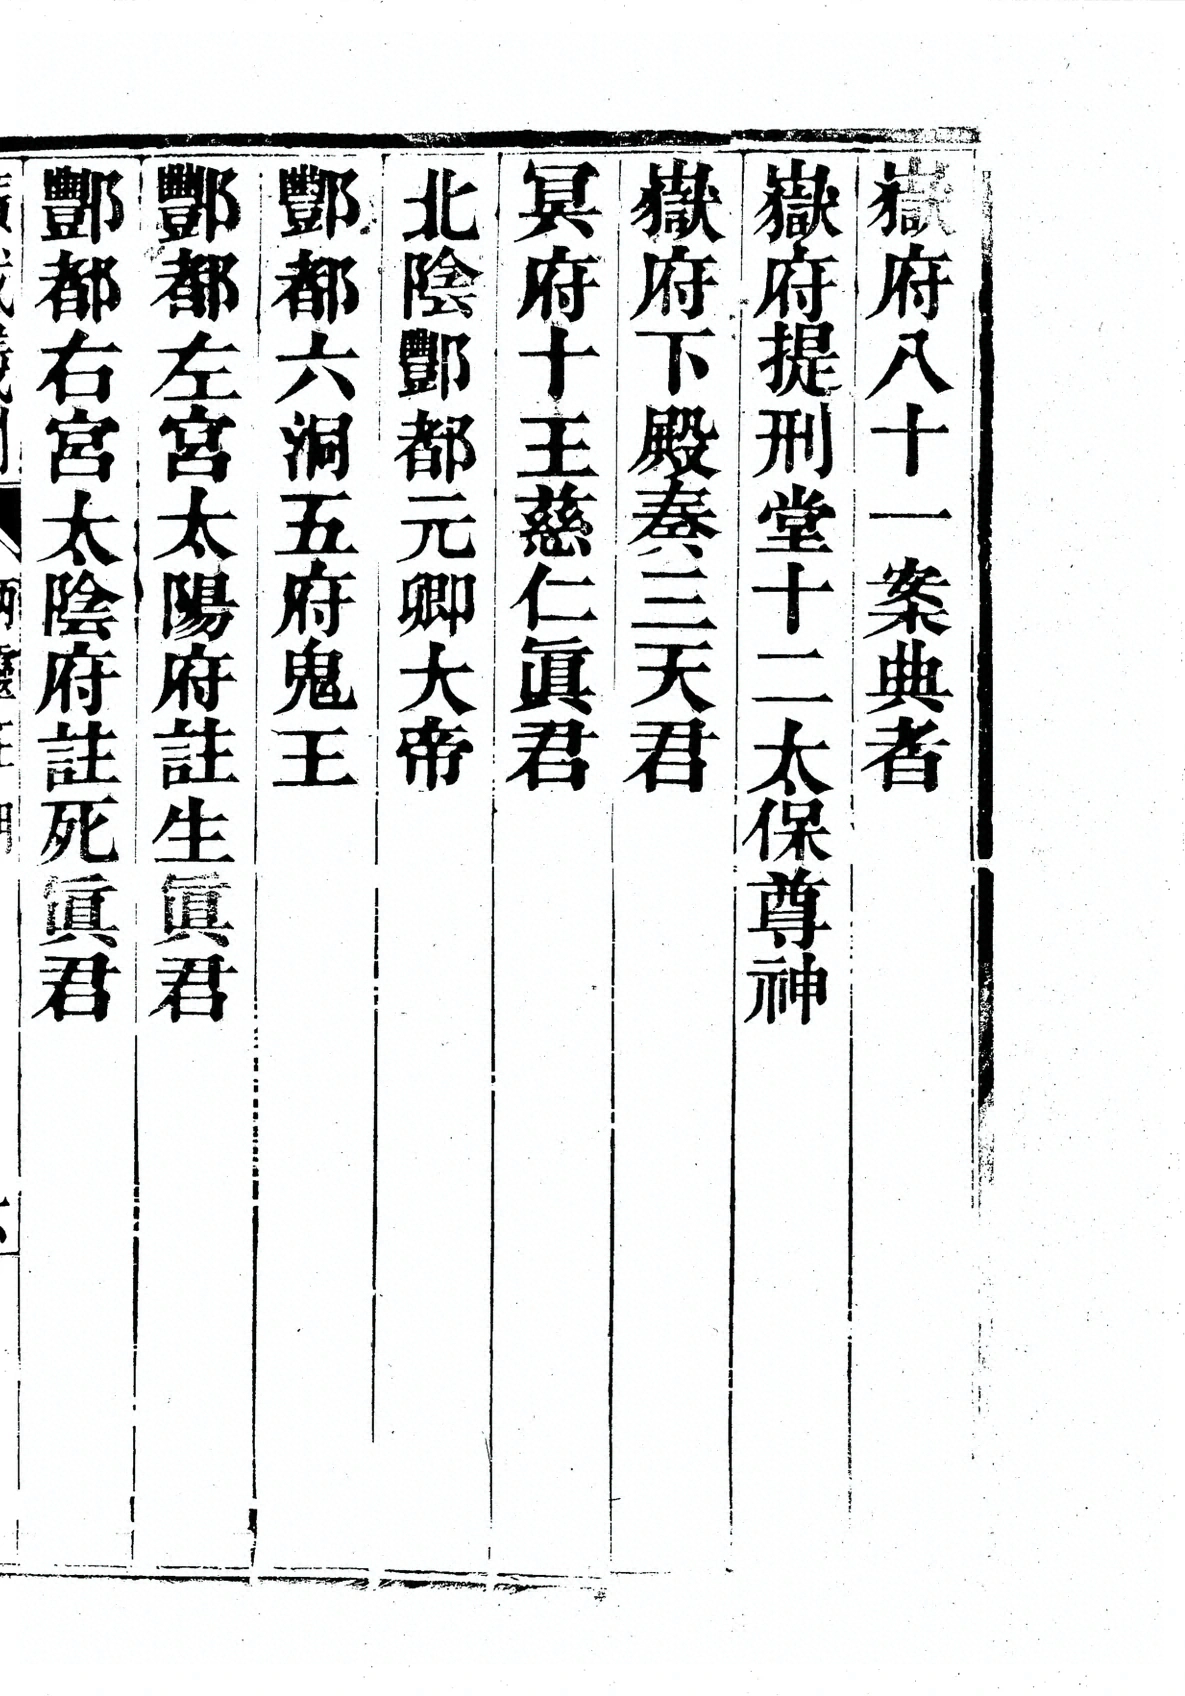 嶽府八十一案典者
嶽府提刑堂十二太保尊神
嶽府下殿奏三天君
冥府十王慈仁眞君
北陰酆都元卿大帝
酆都六洞五府鬼王
酆都左宮太陽府註生眞君
酆都右宮太陰府註死眞君